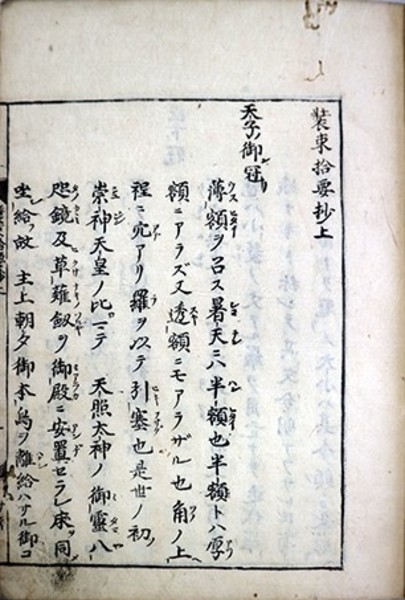 装束拾要抄上
天子御冠
薄額ヲ召ス暑天ニハ半額也半額トハ厚
額ニアラズ又透額ニモアラザル也角ノ上
程ニ穴アリ羅ヲ以テ引塞也是世ノ初
崇神天皇ノ比マテ 天照太神ノ御霊八
咫鏡及草薙劔ヲ御殿ニ安置セラレ床ヲ同
坐給故 主上朝夕御本鳥ヲ離給ハサル御コ